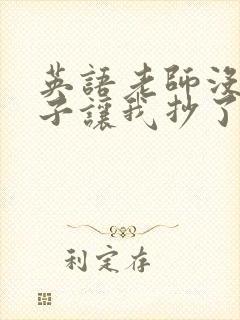 英語老師沒
子讓我抄了
利定存